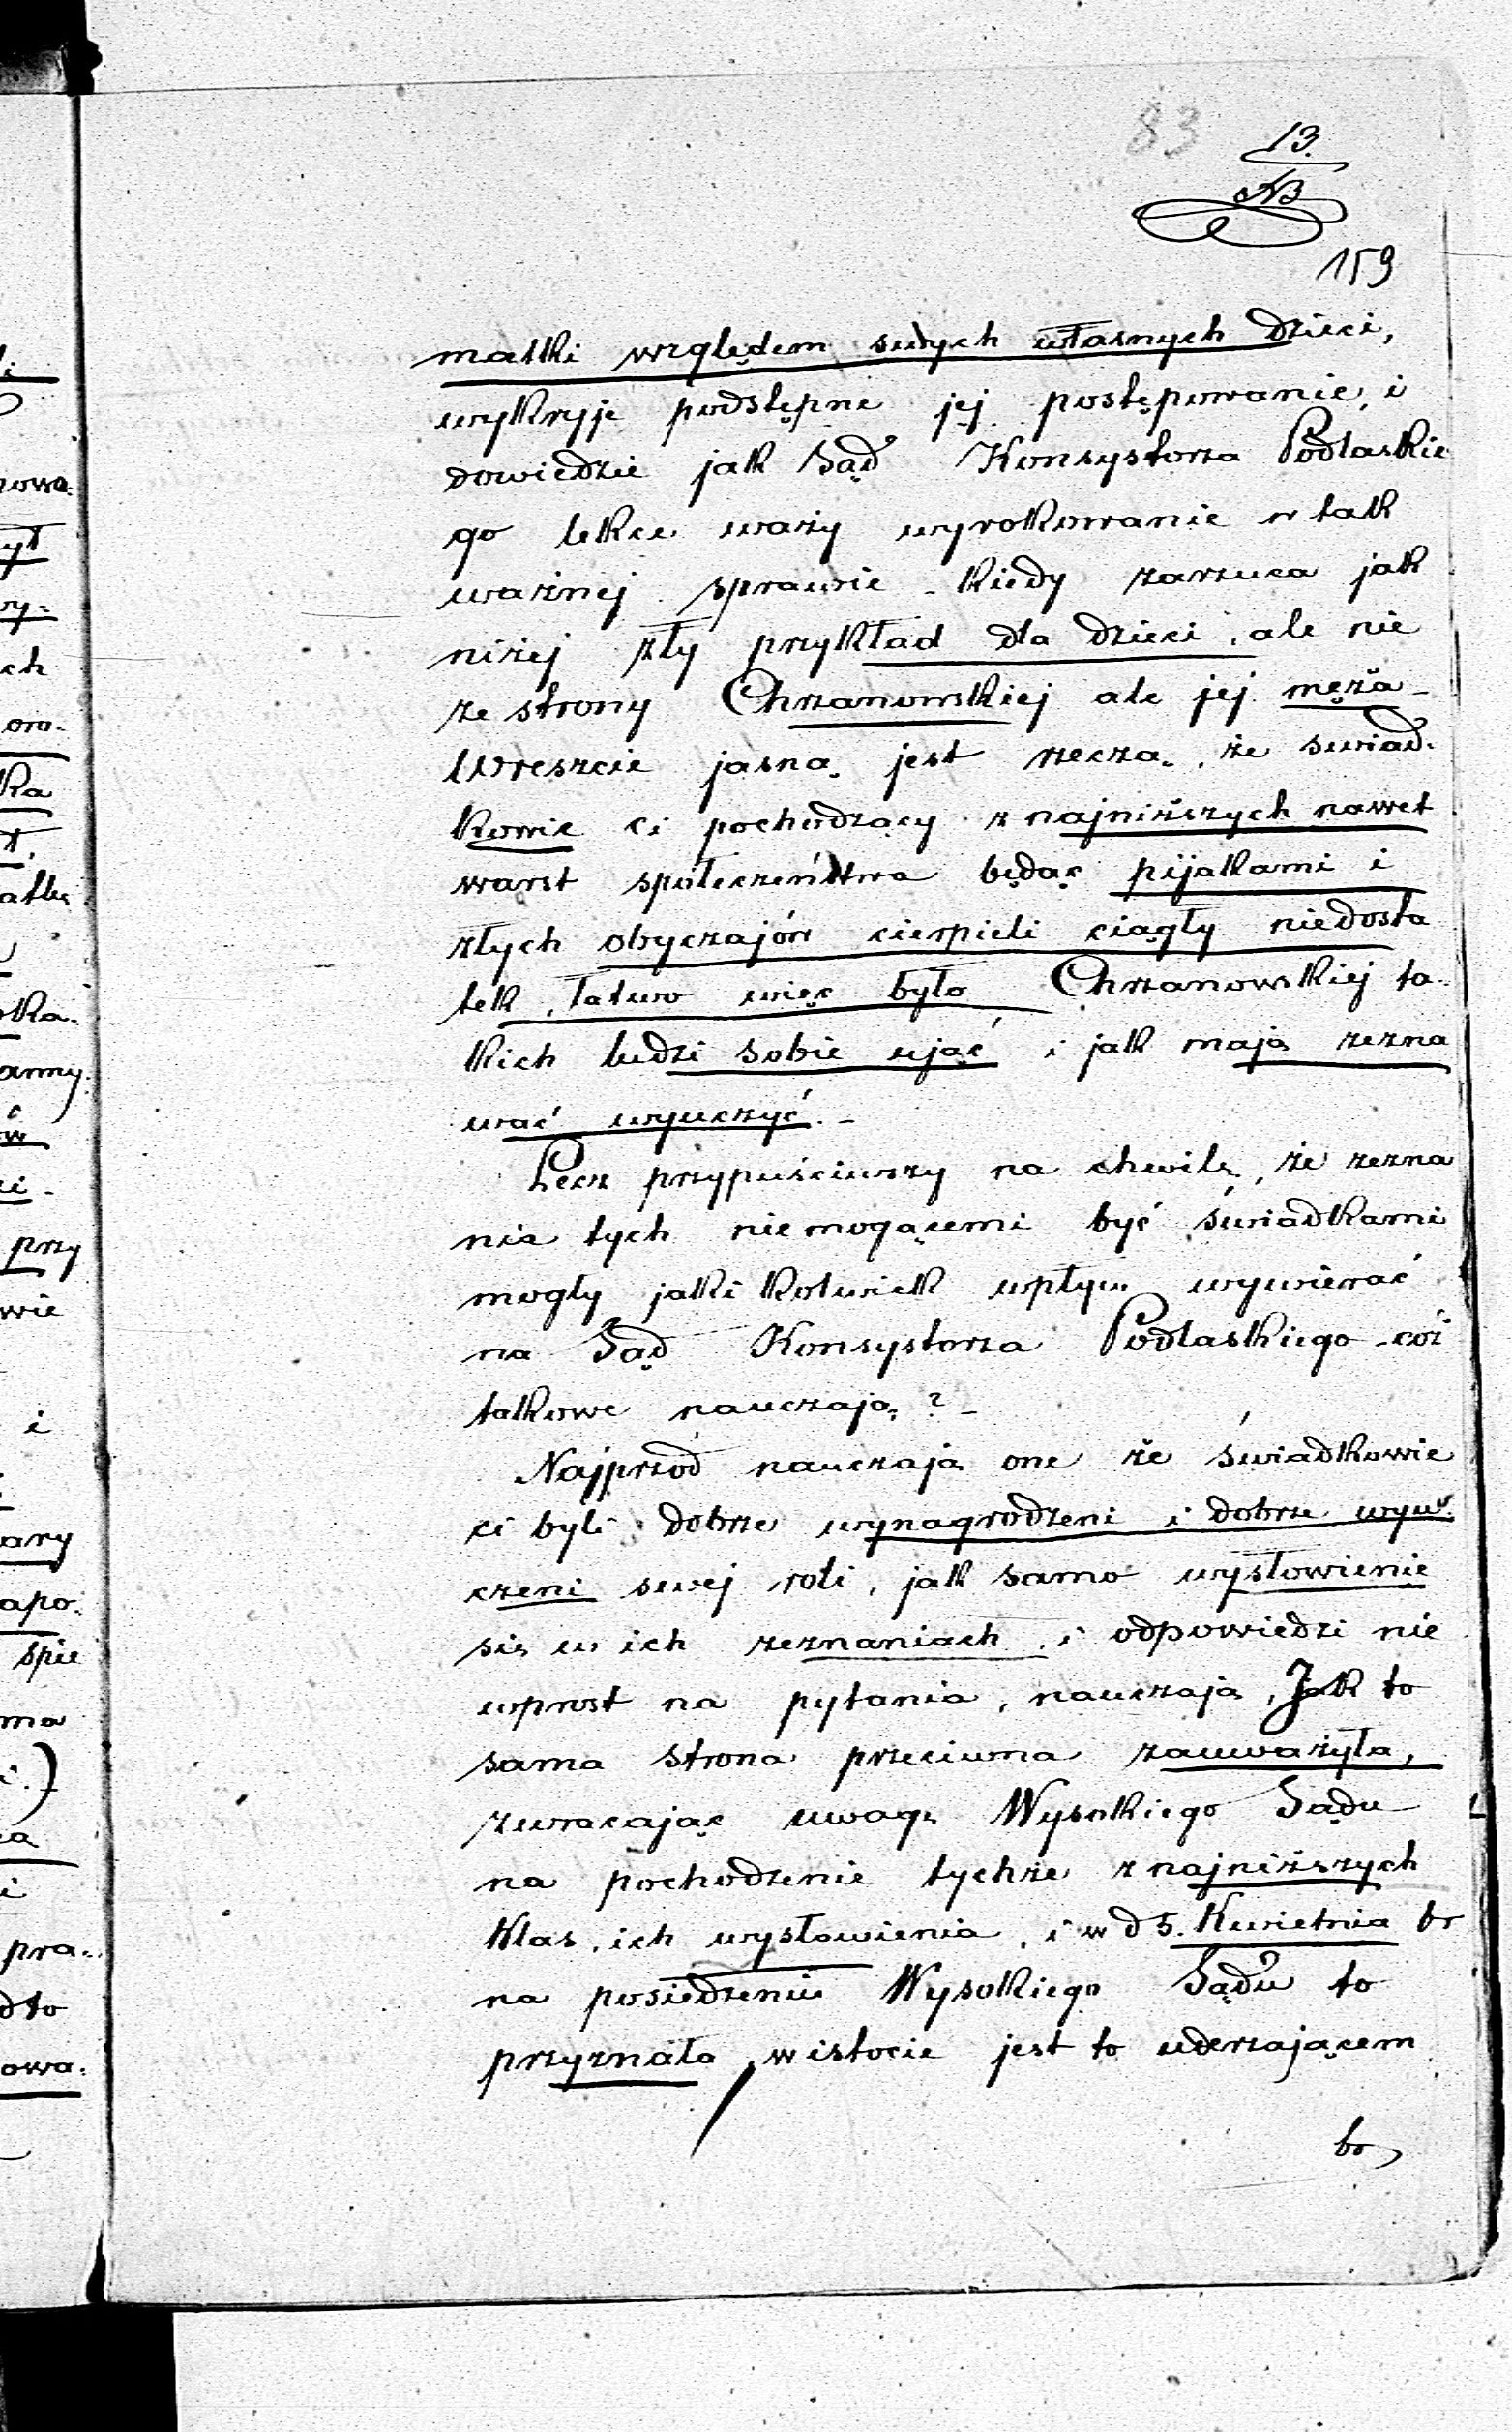 83
13.
NB
159
matki względem swych własnych dzieci,
wykryje podstępne jej postępowanie, i
dowiedzie jak Sąd Konsystorza Podlaskie
go lekce waży wyrokowanie w tak
ważnej sprawie - kiedy zarzuca jak
niżej zły przykład dla dzieci, ale nie
ze strony Chrzanowskiej ale jej męża -
Wreszcie jasną jest rzeczą, że swiad-
kowie ci pochodzący z najniższych nawet
warst społeczeństwa będąc pijakami i
złych obyczajów cierpieli ciągły niedosta
tek, łatwo więc było Chrzanowskiej ta-
kich ludzi sobie ująć i jak mają zezna
wać wyuczyć. -
Lecz przypuściwszy na chwilę, że zezna
nia tych niemogącemi być świadkami
mogły jaki kolwiek wpływ wywierać
na Sąd Konsystorza Podlaskiego - cóż
takowe nauczają? -
Najprzód nauczają one że świadkowie
ci byli dobrze wynagrodzeni i dobrze wyu-
czeni swej roli, jak samo wysłowienie
się w ich zeznaniach, i odpowiedzi nie
wprost na pytania, nauczają, Jak to
sama strona przeciwna zauważyła,
zwracając uwagę Wysokiego Sądu
na pochodzenie tychże z najniższych
klas, ich wysłowienia, i w d 5. Kwietnia br
na posiedzeniu Wysokiego Sądu to
przyznała, w istocie jest to uderzającem
bo